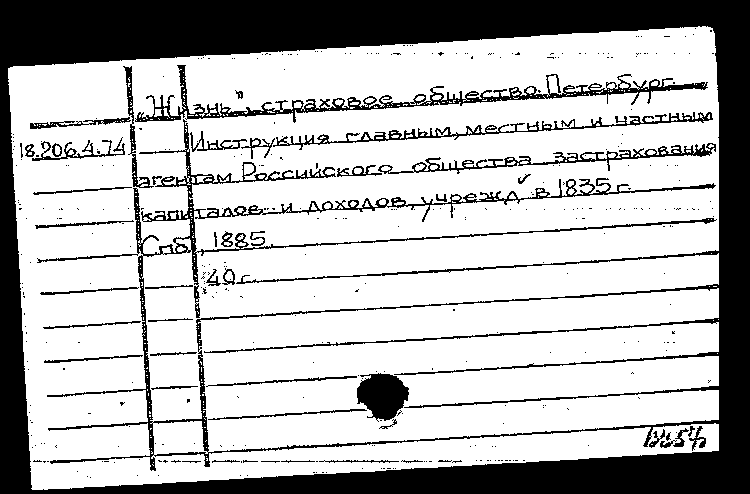 „Жизнь", страховое общество. Петербург.
18.206.4.74 Инструкция главным, местным и частным
агентам Российского общества застрахования
капиталов и доходов, учрежд в 1835 г.
Спб, 1885.
40 с.